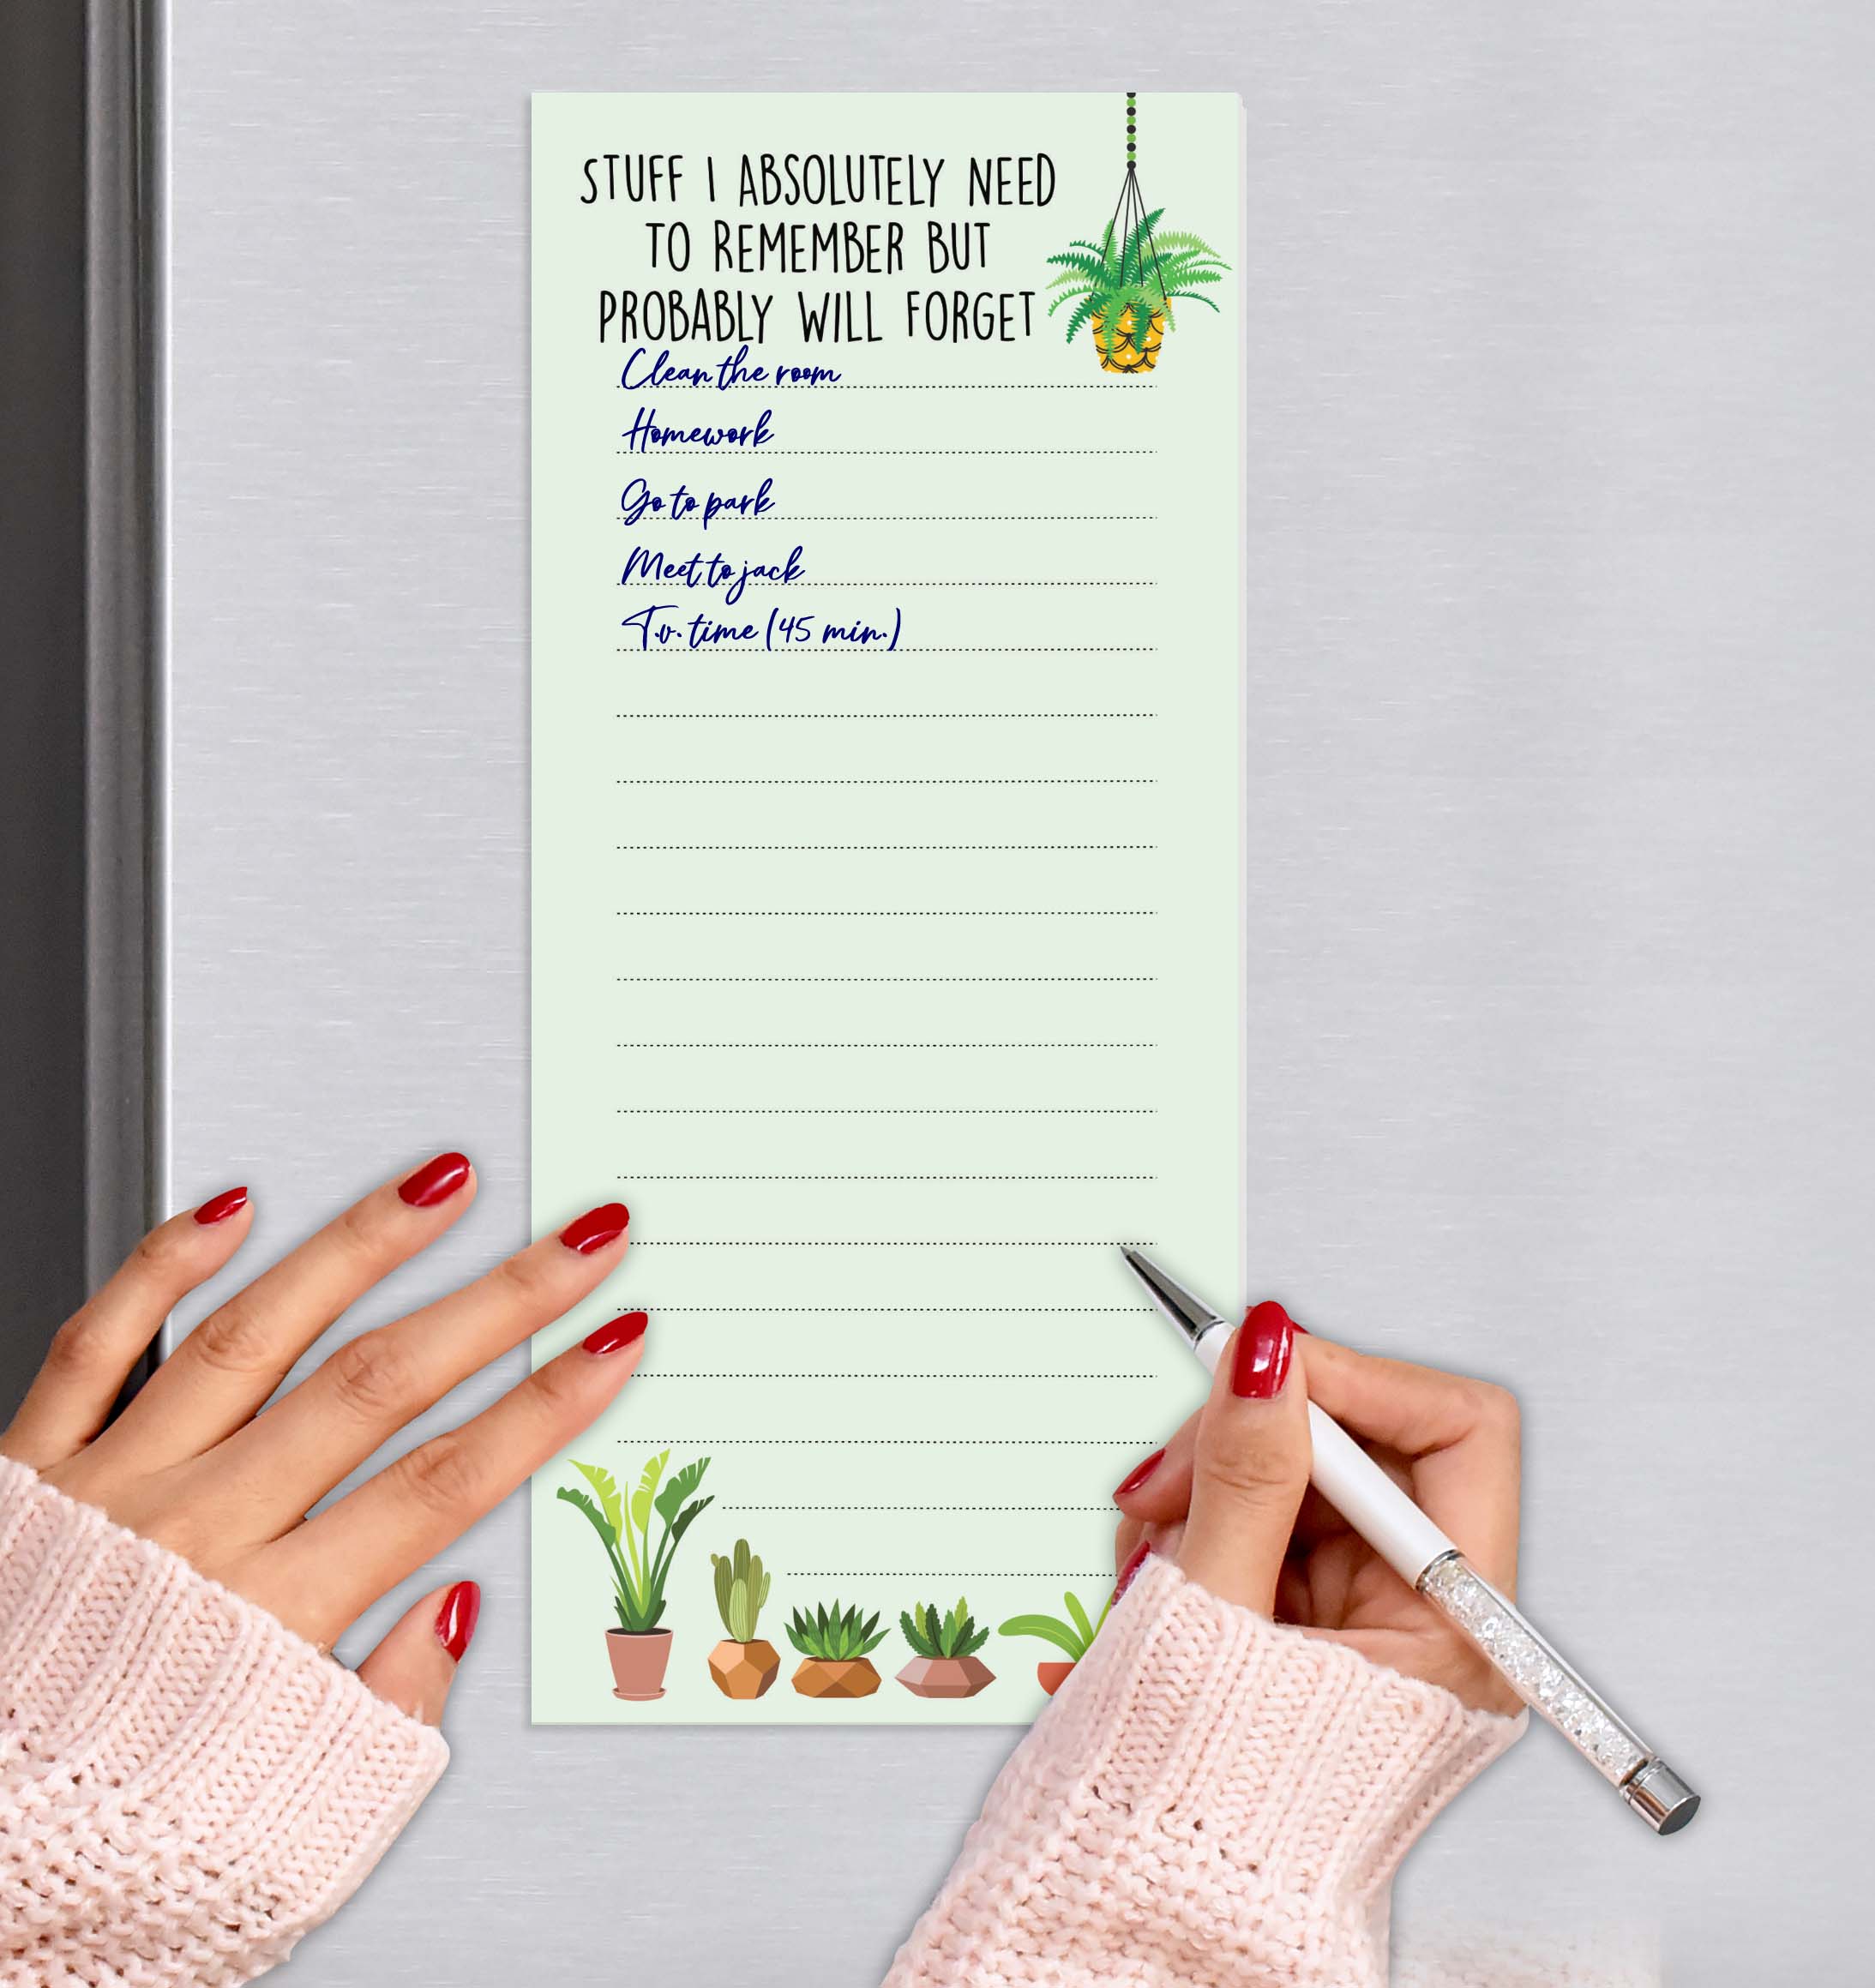 STUFF I ABSOLUTELY NEED
TO REMEMBER BUT
PROBABLY WILL FORGET
Clean the room
Homework
Go to park
Meet to jack
T.v. time (45 min.)